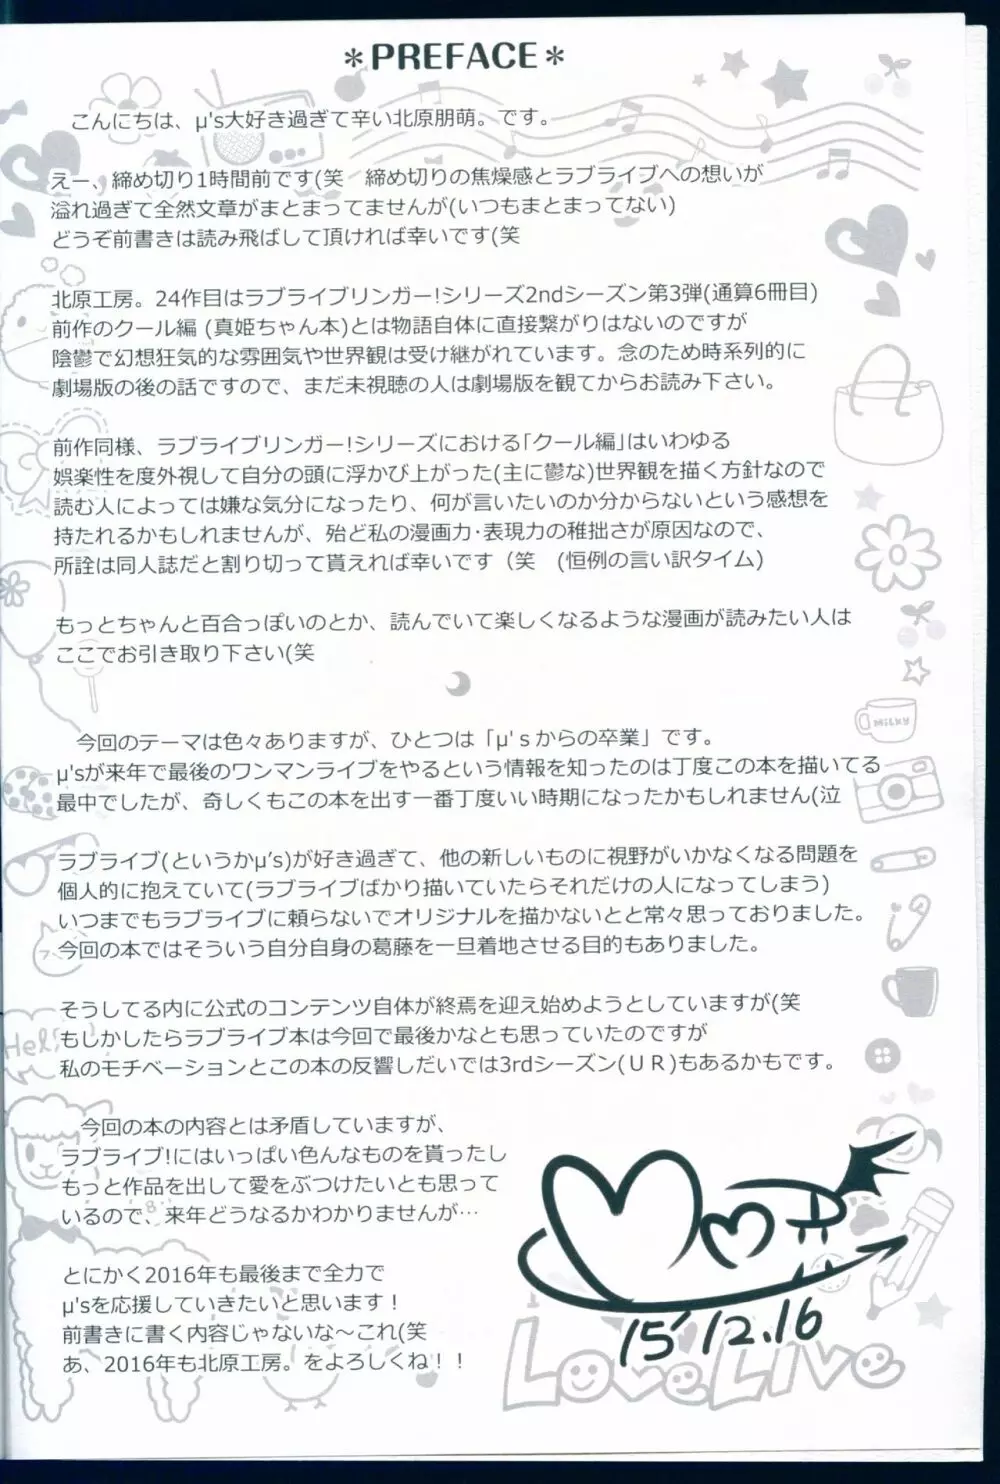 ＊PREFACE＊
こんにちは、μ's大好き過ぎて辛い北原朋萌。です。
えー、締め切り1時間前です(笑　締め切りの焦燥感とラブライブへの想いが
溢れ過ぎて全然文章がまとまってませんが(いつもまとまってない)
どうぞ前書きは読み飛ばして頂ければ幸いです(笑
北原工房。24作目はラブライブリンガー!シリーズ2ndシーズン第3弾(通算6冊目)
前作のクール編 (真姫ちゃん本)とは物語自体に直接繋がりはないのですが
陰鬱で幻想狂気的な雰囲気や世界観は受け継がれています。念のため時系列的に
劇場版の後の話ですので、まだ未視聴の人は劇場版を観てからお読み下さい。
前作同様、ラブライブリンガー!シリーズにおける｢クール編｣はいわゆる
娯楽性を度外視して自分の頭に浮かび上がった(主に鬱な)世界観を描く方針なので
読む人によっては嫌な気分になったり、何が言いたいのか分からないという感想を
持たれるかもしれませんが、殆ど私の漫画力･表現力の稚拙さが原因なので、
所詮は同人誌だと割り切って貰えれば幸いです（笑　(恒例の言い訳タイム)
もっとちゃんと百合っぽいのとか、読んでいて楽しくなるような漫画が読みたい人は
ここでお引き取り下さい(笑
今回のテーマは色々ありますが、ひとつは「μ'ｓからの卒業」です。
μ'sが来年で最後のワンマンライブをやるという情報を知ったのは丁度この本を描いてる
最中でしたが、奇しくもこの本を出す一番丁度いい時期になったかもしれません(泣
ラブライブ(というかμ’s)が好き過ぎて、他の新しいものに視野がいかなくなる問題を
個人的に抱えていて(ラブライブばかり描いていたらそれだけの人になってしまう)
いつまでもラブライブに頼らないでオリジナルを描かないとと常々思っておりました。
今回の本ではそういう自分自身の葛藤を一旦着地させる目的もありました。
そうしてる内に公式のコンテンツ自体が終焉を迎え始めようとしていますが(笑
もしかしたらラブライブ本は今回で最後かなとも思っていたのですが
私のモチベーションとこの本の反響しだいでは3rdシーズン(ＵＲ)もあるかもです。
今回の本の内容とは矛盾していますが、
ラブライブ!にはいっぱい色んなものを貰ったし
もっと作品を出して愛をぶつけたいとも思って
いるので、来年どうなるかわかりませんが…
とにかく2016年も最後まで全力で
μ'sを応援していきたいと思います！
前書きに書く内容じゃないな～これ(笑
あ、2016年も北原工房。をよろしくね！！
15'12.16
LoveLive
MILKY